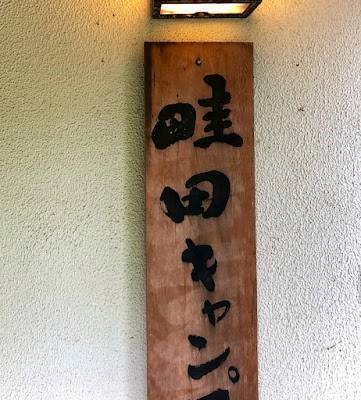 畦田キャンプ